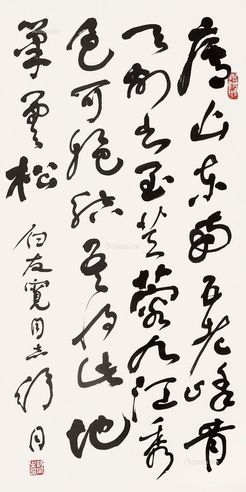 庐山东南五老峰青
天削出金芙蓉九江秀
色可揽结吾将此地
巢云松
白友宽同志 舒同